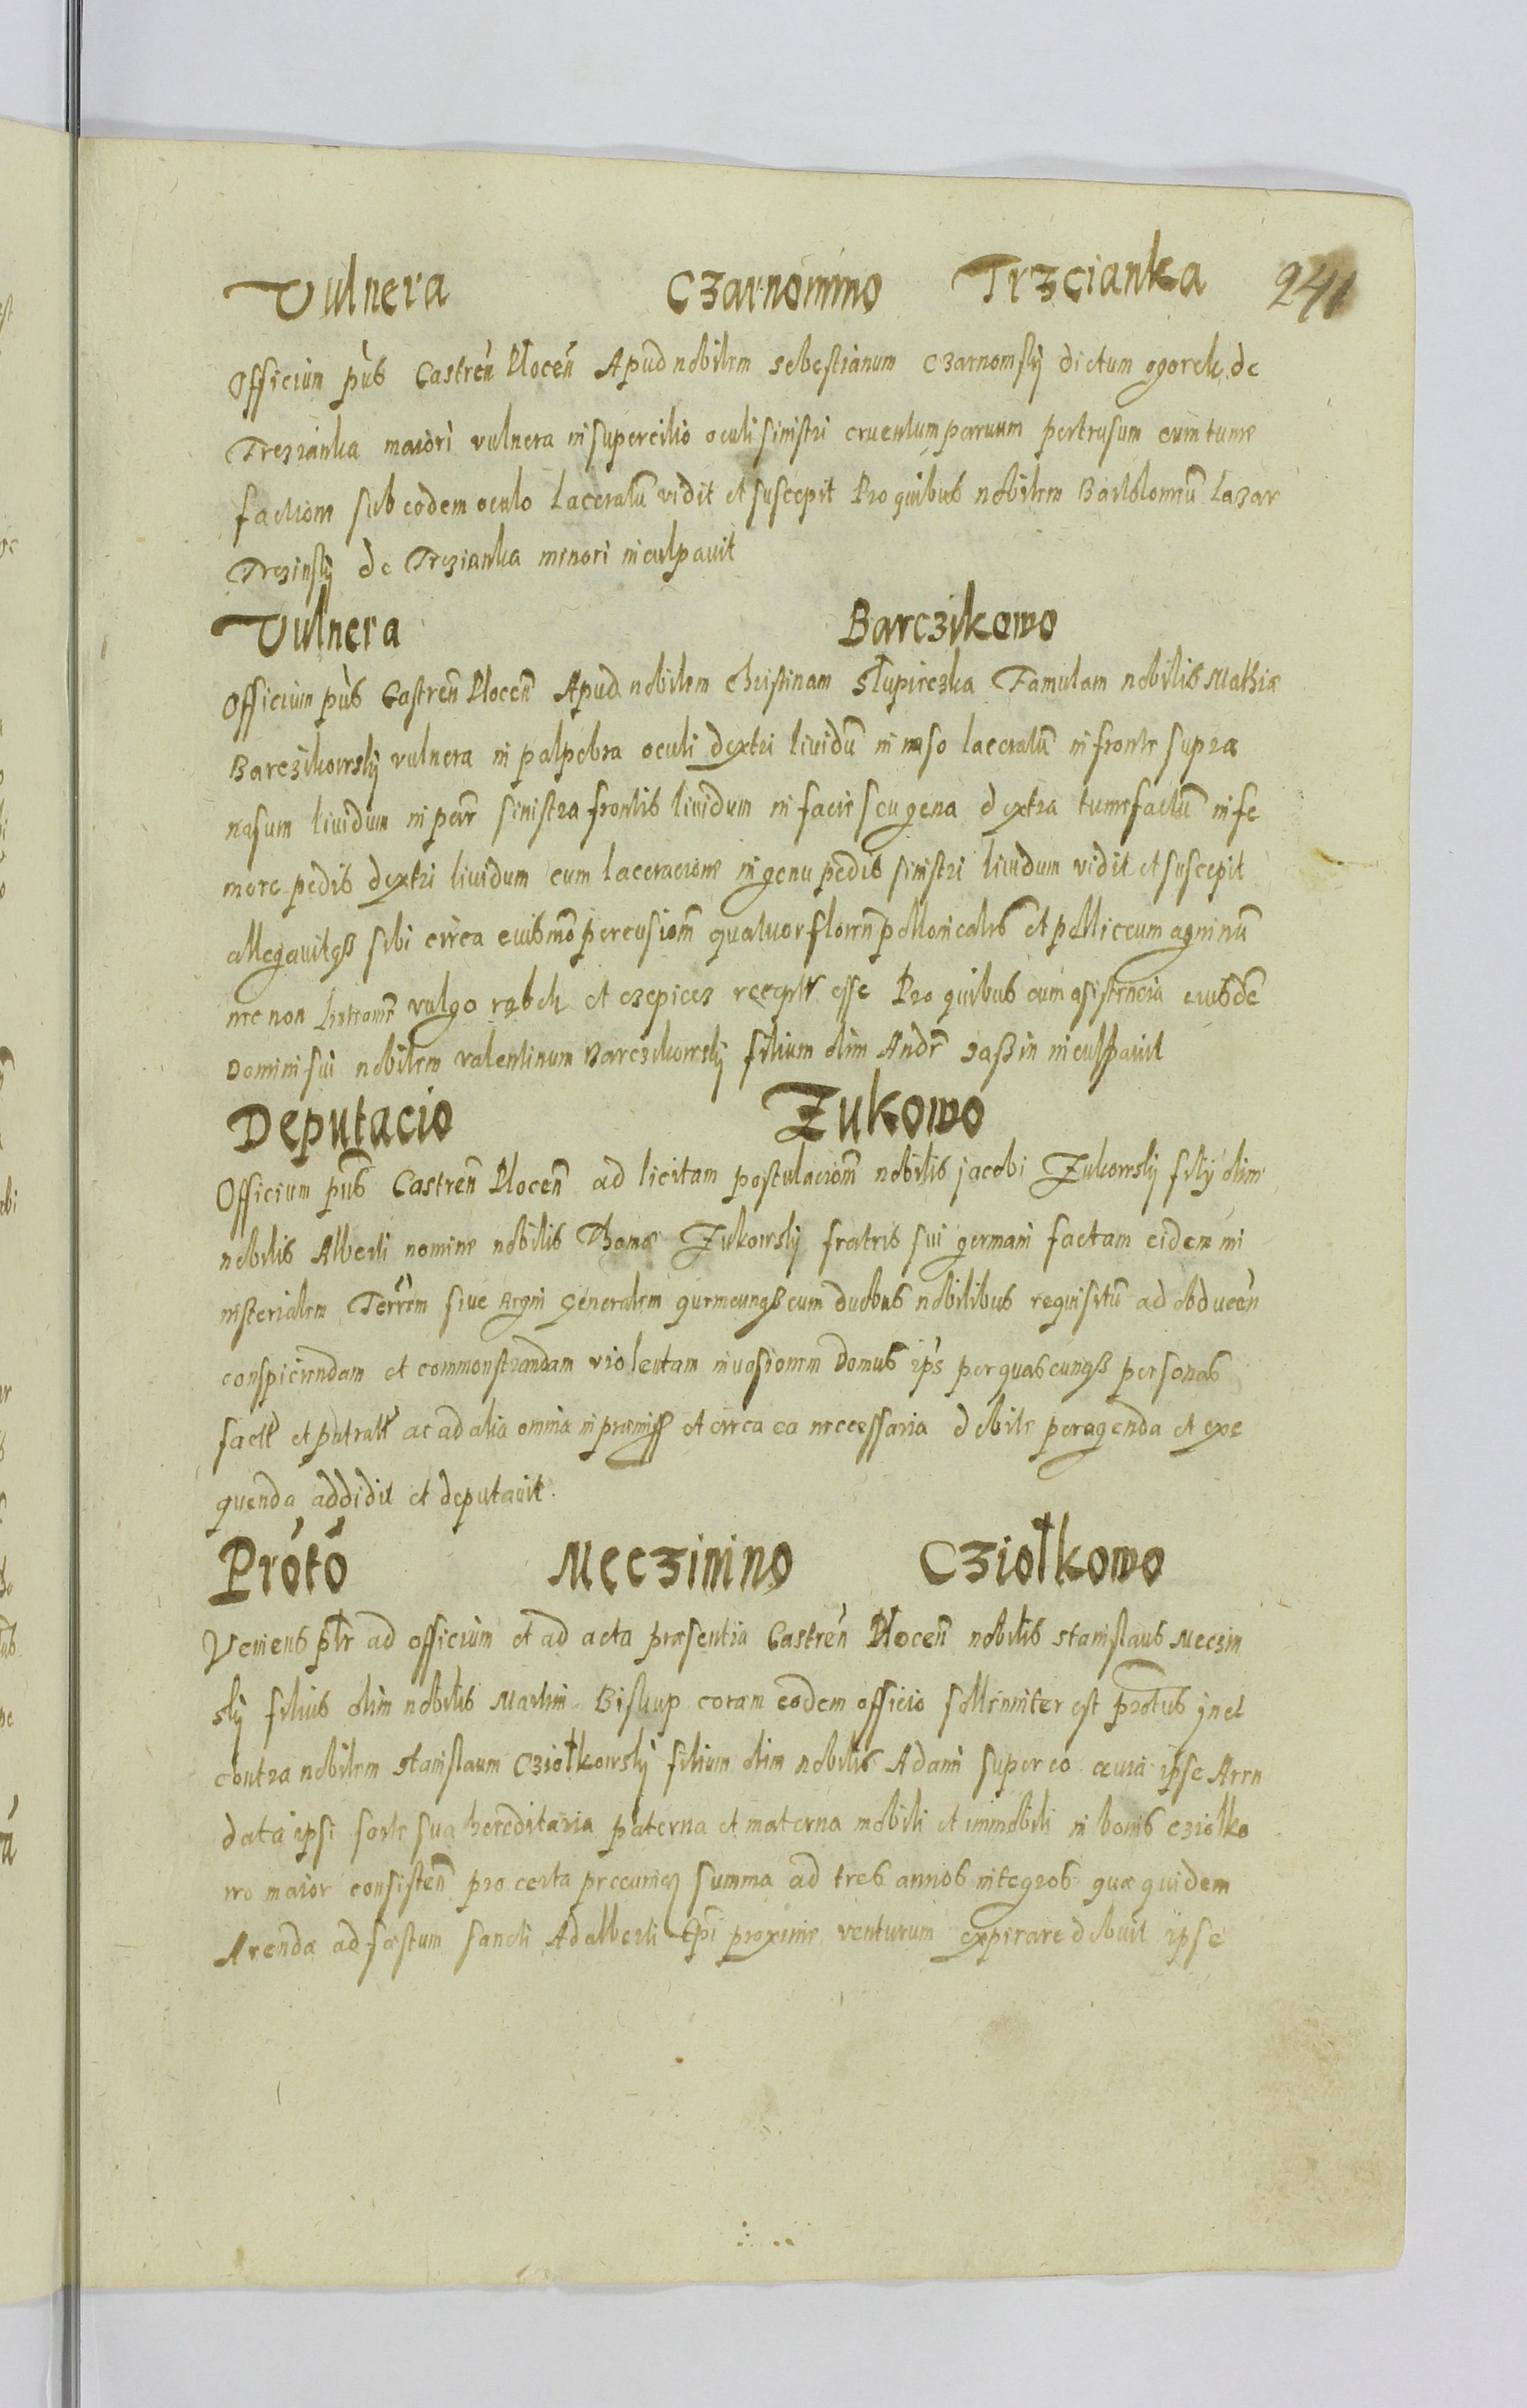 Vulnera Czarnomino Trzcianka 241
Officiūm pñs Castreñ Ploceñ Apud nobilem Sebestianum Czarnomsky dictum ogorek de
Trczianka maiori vulnera in supercilio oculi sinistri cruentum paruum pertrusum cum tume
factione sub eodem oculo laceratū vidit et suscepit Pro quibus nobilem Bartolomeū Lazar
Trczinsky de Trczianka minori inculpauit
Vulnera Barczikowo
Officium pñs Castreñ Ploceñ Apud nobilem Christinam Słupieczka Famulam nobilis Mathiæ
Barczikowsky vulnera in palpebra oculi dextri liuidū in naso laceratū in fronte supra
nasum liuidum in parte sinistra frontis liuidum in facie seu gena dextra tumefactū in fe
more pedis dextri liuidum cum laceracione in genu pedis sinistri liuidum vidit et suscepit
allegauitqȝ sibi circa euismō percusionē quatuor floreñ pollonicales et pelliceum agninū
nec non vulgo rąbek et czepiecz esse Pro quibus cum asistencia eiusdē
Domini sui nobilem Valentinum Barczikowsky filium olim Andr̄ inculpauit
Deputacio Zukowo
Officium pñs Castreñ Ploceñ ad licitam postulacionē nobilis Jacobi Zukowsky fily olim
nobilis Alberti nomine nobilis Thomæ Zukowsky fratris sui germani factam eidem mi
nisterialem Terrēm siue Regni Generalem quemcunqȝ cum duobus nobilibus requisitū ad obduceñ
conspiciendam et commonstrandam violentam inuasionem Domus ips̄ per quascunqȝ personas
factē et ptratē ac ad alia omnia in præmiss et circa ea necessaria debite peragenda et exe
quenda addidit et deputauit.
Prōtō Męczinino Cziołkowo
Veniens pltr ad officium et ad acta præsentia Castreñ Ploceñ nobilis Stanislaus Męczin
sky filius olim nobilis Martini Biskup coram eodem officio sollenniter est protūs
contra nobilem Stanislaum Cziołkowsky filium olim nobilis Adami super eo quia ipse Aren
data ipsi sorte sua hereditaria paterna et materna mobili et immobili in bonis Cziolko
wo maior consisteñ pro certa summa ad tres annos integros quæ quidem
Arenda ad festum Sancti Adalberti Epi proxime venturum expirare debuit ipse